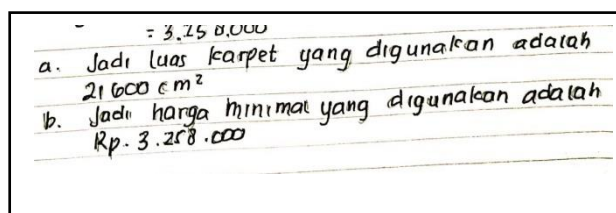 = 3.258.000
a. Jadi luas karpet yang digunakan adalah
21600 cm²
b. Jadi harga minimal yang digunakan adalah
Rp. 3.258.000